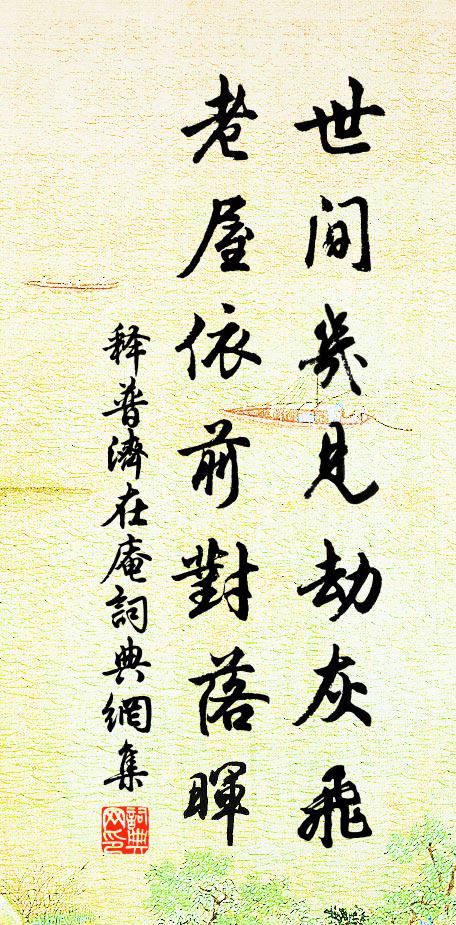 世間幾見劫灰飛
老屋依前對落暉
释普濟在庵詞典網集
詞典网印